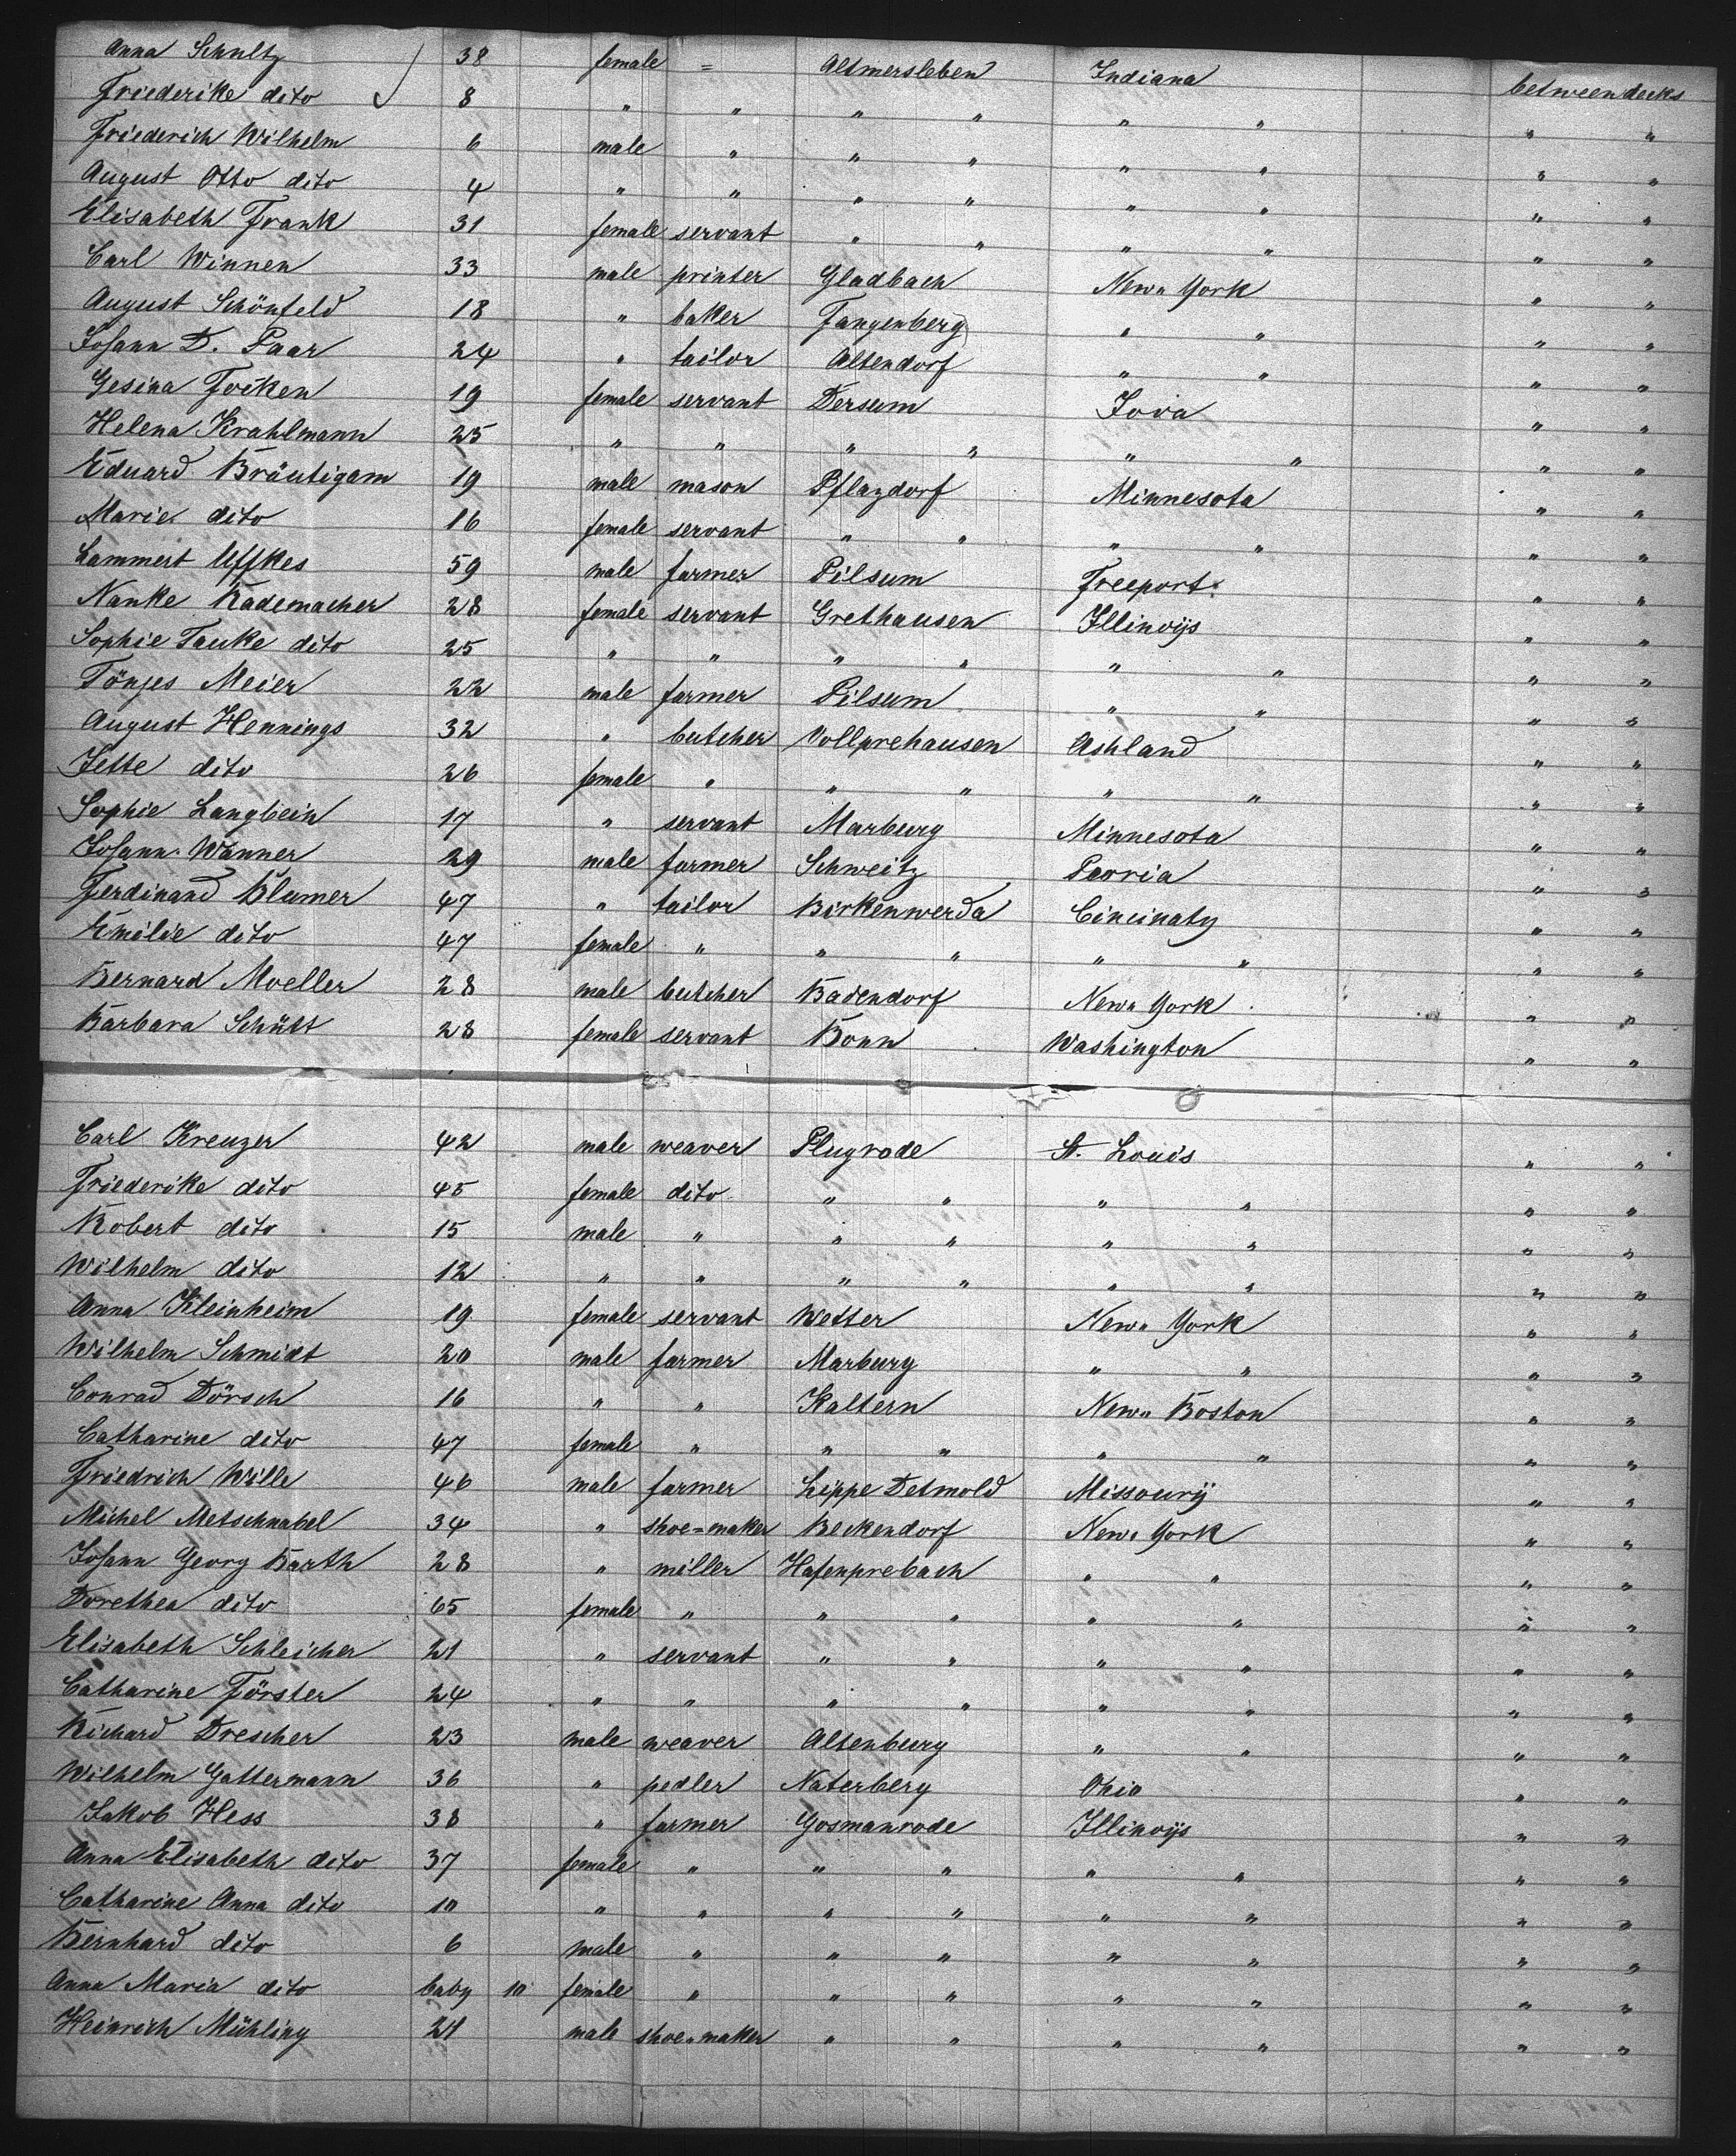 Anna Schultz 38 female = Altmersleben Indiana between decks
Friederike dito 8 " " " " " " " "
Friederich Wilhelm 6 male " " " " " " "
August Otto dito 4 " " " " " " " "
Elisabeth Frank 31 female servant " " " " " "
Carl Winnen 33 male printer Gladbach New York " "
August Schönfeld 18 " baker Fangenberg " " " "
Johann D. Paar 24 " tailor Altendorf " " " "
Gesina Focken 19 female servant Dersum Iova " "
Helena Krahlmann 25 " " " " " " " "
Eduard Bräutigam 19 male mason Pflazdorf Minnesota " "
Marie dito 16 female servant " " " " " "
Lammert Uffkes 59 male farmer Pilsum Freeport " "
Nanke Rademacher 28 female servant Grethausen Illinoijs " "
Sophie Tauke dito 25 " " " " " " " "
Tönjes Meier 22 male farmer Pilsum " " " "
August Hennings 32 " butcher Vollprehausen Ashland " "
Jette dito 26 female " " " " " " "
Sophie Langbein 17 " servant Marburg Minnesota " "
Johann Wanner 29 male farmer Schweitz Peoria " "
Ferdinand Blumer 47 " tailor Birkenwerda Cincinaty " "
Emilie dito 47 female " " " " " " "
Bernard Moeller 28 male butcher Badendorf New York " "
Barbara Schütt 28 female servant Bonn Washington " "
Carl Kreuzer 42 male weaver Plugrode St. Louis " "
Friederike dito 45 female dito " " " " " "
Robert dito 15 male " " " " " " "
Wilhelm dito 12 " " " " " " " "
Anna Kleinheim 19 female servant Wetter New York " "
Wilhelm Schmidt 20 male farmer Marburg " " " "
Conrad Dörsch 16 " " Kaltern New Boston " "
Catharine dito 47 female " " " " " " "
Friedrich Wille 46 male farmer Lippe Detmold Missourij " "
Michel Metschnabel 34 " shoe=maker Beckendorf New York " "
Johann Georg Barth 28 " miller Hafenprebach " " " "
Dorethea dito 65 female " " " " " " "
Elisabeth Schleicher 21 " servant " " " " " "
Catharine Förster 24 " " " " " " " "
Richard Drescher 23 male weaver Altenburg " " " "
Wilhelm Gattermann 36 " pedler Naterberg Ohio " "
Jakob Hess 38 " farmer Gosmanrode Illinoijs " "
Anna Elisabeth dito 37 female " " " " " " "
Catharine Anna dito 10 " " " " " " " "
Bernhard dito 6 male " " " " " " "
Anna Maria dito baby 10 female " " " " " " "
Heinrich Mühling 21 male shoe=maker " " " " " "